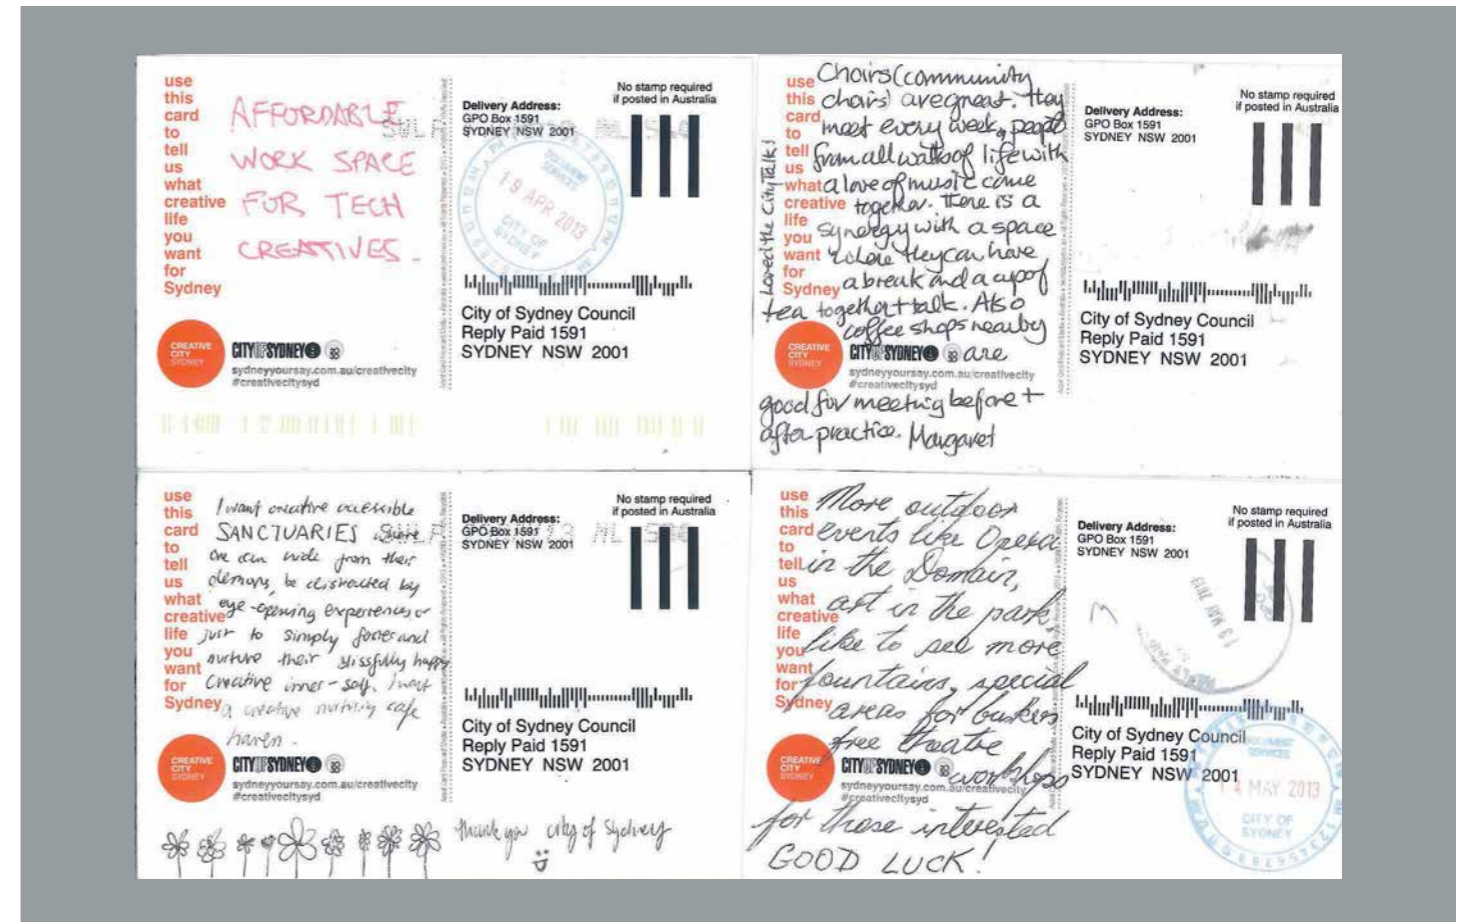 use
this
card
to
tell
us
what
creative
life
you
want
for
Sydney
AFFORDABLE
WORK SPACE
FOR TECH
CREATIVES.
CREATIVE
CITY
SYDNEY
CITYOFSYDNEY
sydneyyoursay.com.au/creativecity
#creativecitysyd
Delivery Address:
GPO Box 1591
SYDNEY NSW 2001
No stamp required
if posted in Australia
DOCUMENT
SERVICES
19 APR 2013
CITY OF
SYDNEY
City of Sydney Council
Reply Paid 1591
SYDNEY NSW 2001
use
this
card
to
tell
us
what
creative
life
you
want
for
Sydney
Choirs (community
choirs) are great. They
meet every week, people
from all walks of life with
a love of music come
together. There is a
synergy with a space
where they can have
a break and a cup of
tea together + talk. Also
coffee shops nearby
are
good for meeting before +
after practice. Margaret
Loved the City Talks
CREATIVE
CITY
SYDNEY
CITYOFSYDNEY
sydneyyoursay.com.au/creativecity
#creativecitysyd
Delivery Address:
GPO Box 1591
SYDNEY NSW 2001
No stamp required
if posted in Australia
City of Sydney Council
Reply Paid 1591
SYDNEY NSW 2001
use
this
card
to
tell
us
what
creative
life
you
want
for
Sydney
I want creative accessible
SANCTUARIES where
one can hide from their
demons, be distracted by
eye-opening experiences or
just to simply foster and
nurture their blissfully happy
creative inner-self. I want
a creative nurturing cafe
haven.
CREATIVE
CITY
SYDNEY
CITYOFSYDNEY
sydneyyoursay.com.au/creativecity
#creativecitysyd
thank you city of Sydney
Delivery Address:
GPO Box 1591
SYDNEY NSW 2001
No stamp required
if posted in Australia
City of Sydney Council
Reply Paid 1591
SYDNEY NSW 2001
use
this
card
to
tell
us
what
creative
life
you
want
for
Sydney
More outdoor
events like Opera
in the Domain,
art in the park,
like to see more
fountains, special
areas for buskers
free theatre
workshops
for those interested
GOOD LUCK!
CREATIVE
CITY
SYDNEY
CITYOFSYDNEY
sydneyyoursay.com.au/creativecity
#creativecitysyd
Delivery Address:
GPO Box 1591
SYDNEY NSW 2001
No stamp required
if posted in Australia
13 MAY 2013
City of Sydney Council
Reply Paid 1591
SYDNEY NSW 2001
DOCUMENT
SERVICES
14 MAY 2013
CITY OF
SYDNEY